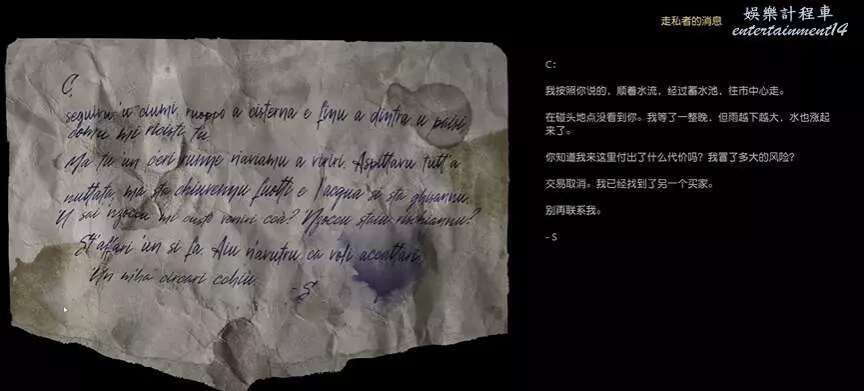 走私者的消息
娛樂計程車
entertainment14
C,
seguivu 'u ciumi, ruoppo a cisterna e finu a dintra u paisi
donni mi ricisti tu.
Ma tu 'un ceri runni n'aviamu a viriri. Aspittavu tutt'a
nuttata, ma sta chiuvennu fuotti e l'acqua si sta ghisannu.
'U sai nzoccu mi custò veniri ccà? Nzoccu staiu rischiannu?
St'affari 'un si fa. Aiu n'avutru ca voli accattari.
'Un miha circari cchiù.
- S
C:
我按照你说的，顺着水流，经过蓄水池，往市中心走。
在碰头地点没看到你。我等了一整晚，但雨越下越大，水也涨起
来了。
你知道我来这里付出了什么代价吗？我冒了多大的风险？
交易取消。我已经找到了另一个买家。
别再联系我。
- S